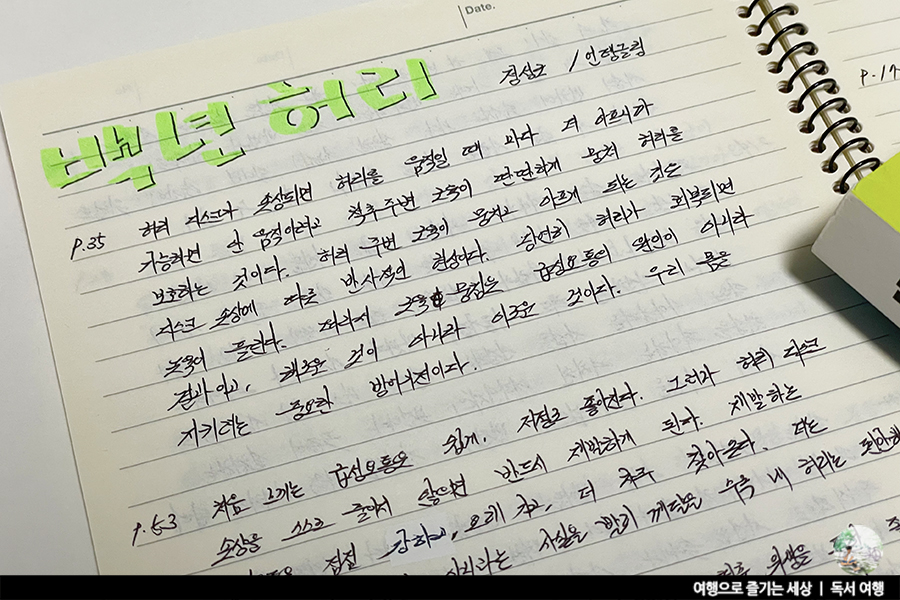 Date.
백년 허리
정선근 / 언탱글링
P.17
P.35 허리 디스크가 손상되면 허리를 움직일 때 마다 더 아프니까
가능하면 안 움직이려고 척추주변 근육이 딴딴하게 뭉쳐 허리를
보호하는 것이다. 허리 주변 근육이 뭉치고 아프게 되는 것은
디스크 손상에 따른 반사적인 현상이다. 당연히 허리가 회복되면
근육이 풀린다. 따라서 근육 뭉침은 급성요통의 원인이 아니라
결과이고, 해로운 것이 아니라 이로운 것이다. 우리 몸을
지키려는 중요한 방어기전이다.
P.53 처음 오는 급성요통은 쉽게, 저절로 좋아진다. 그러나 허리 디스크
손상을 스스로 줄이지 않으면 반드시 재발하게 된다. 재발하는
점점 강하고, 오래 가고, 더 자주 찾아온다. 나는
이라는 사실을 빨리 깨달을 수록 내 허리는
여행으로 즐기는 세상 | 독서 여행